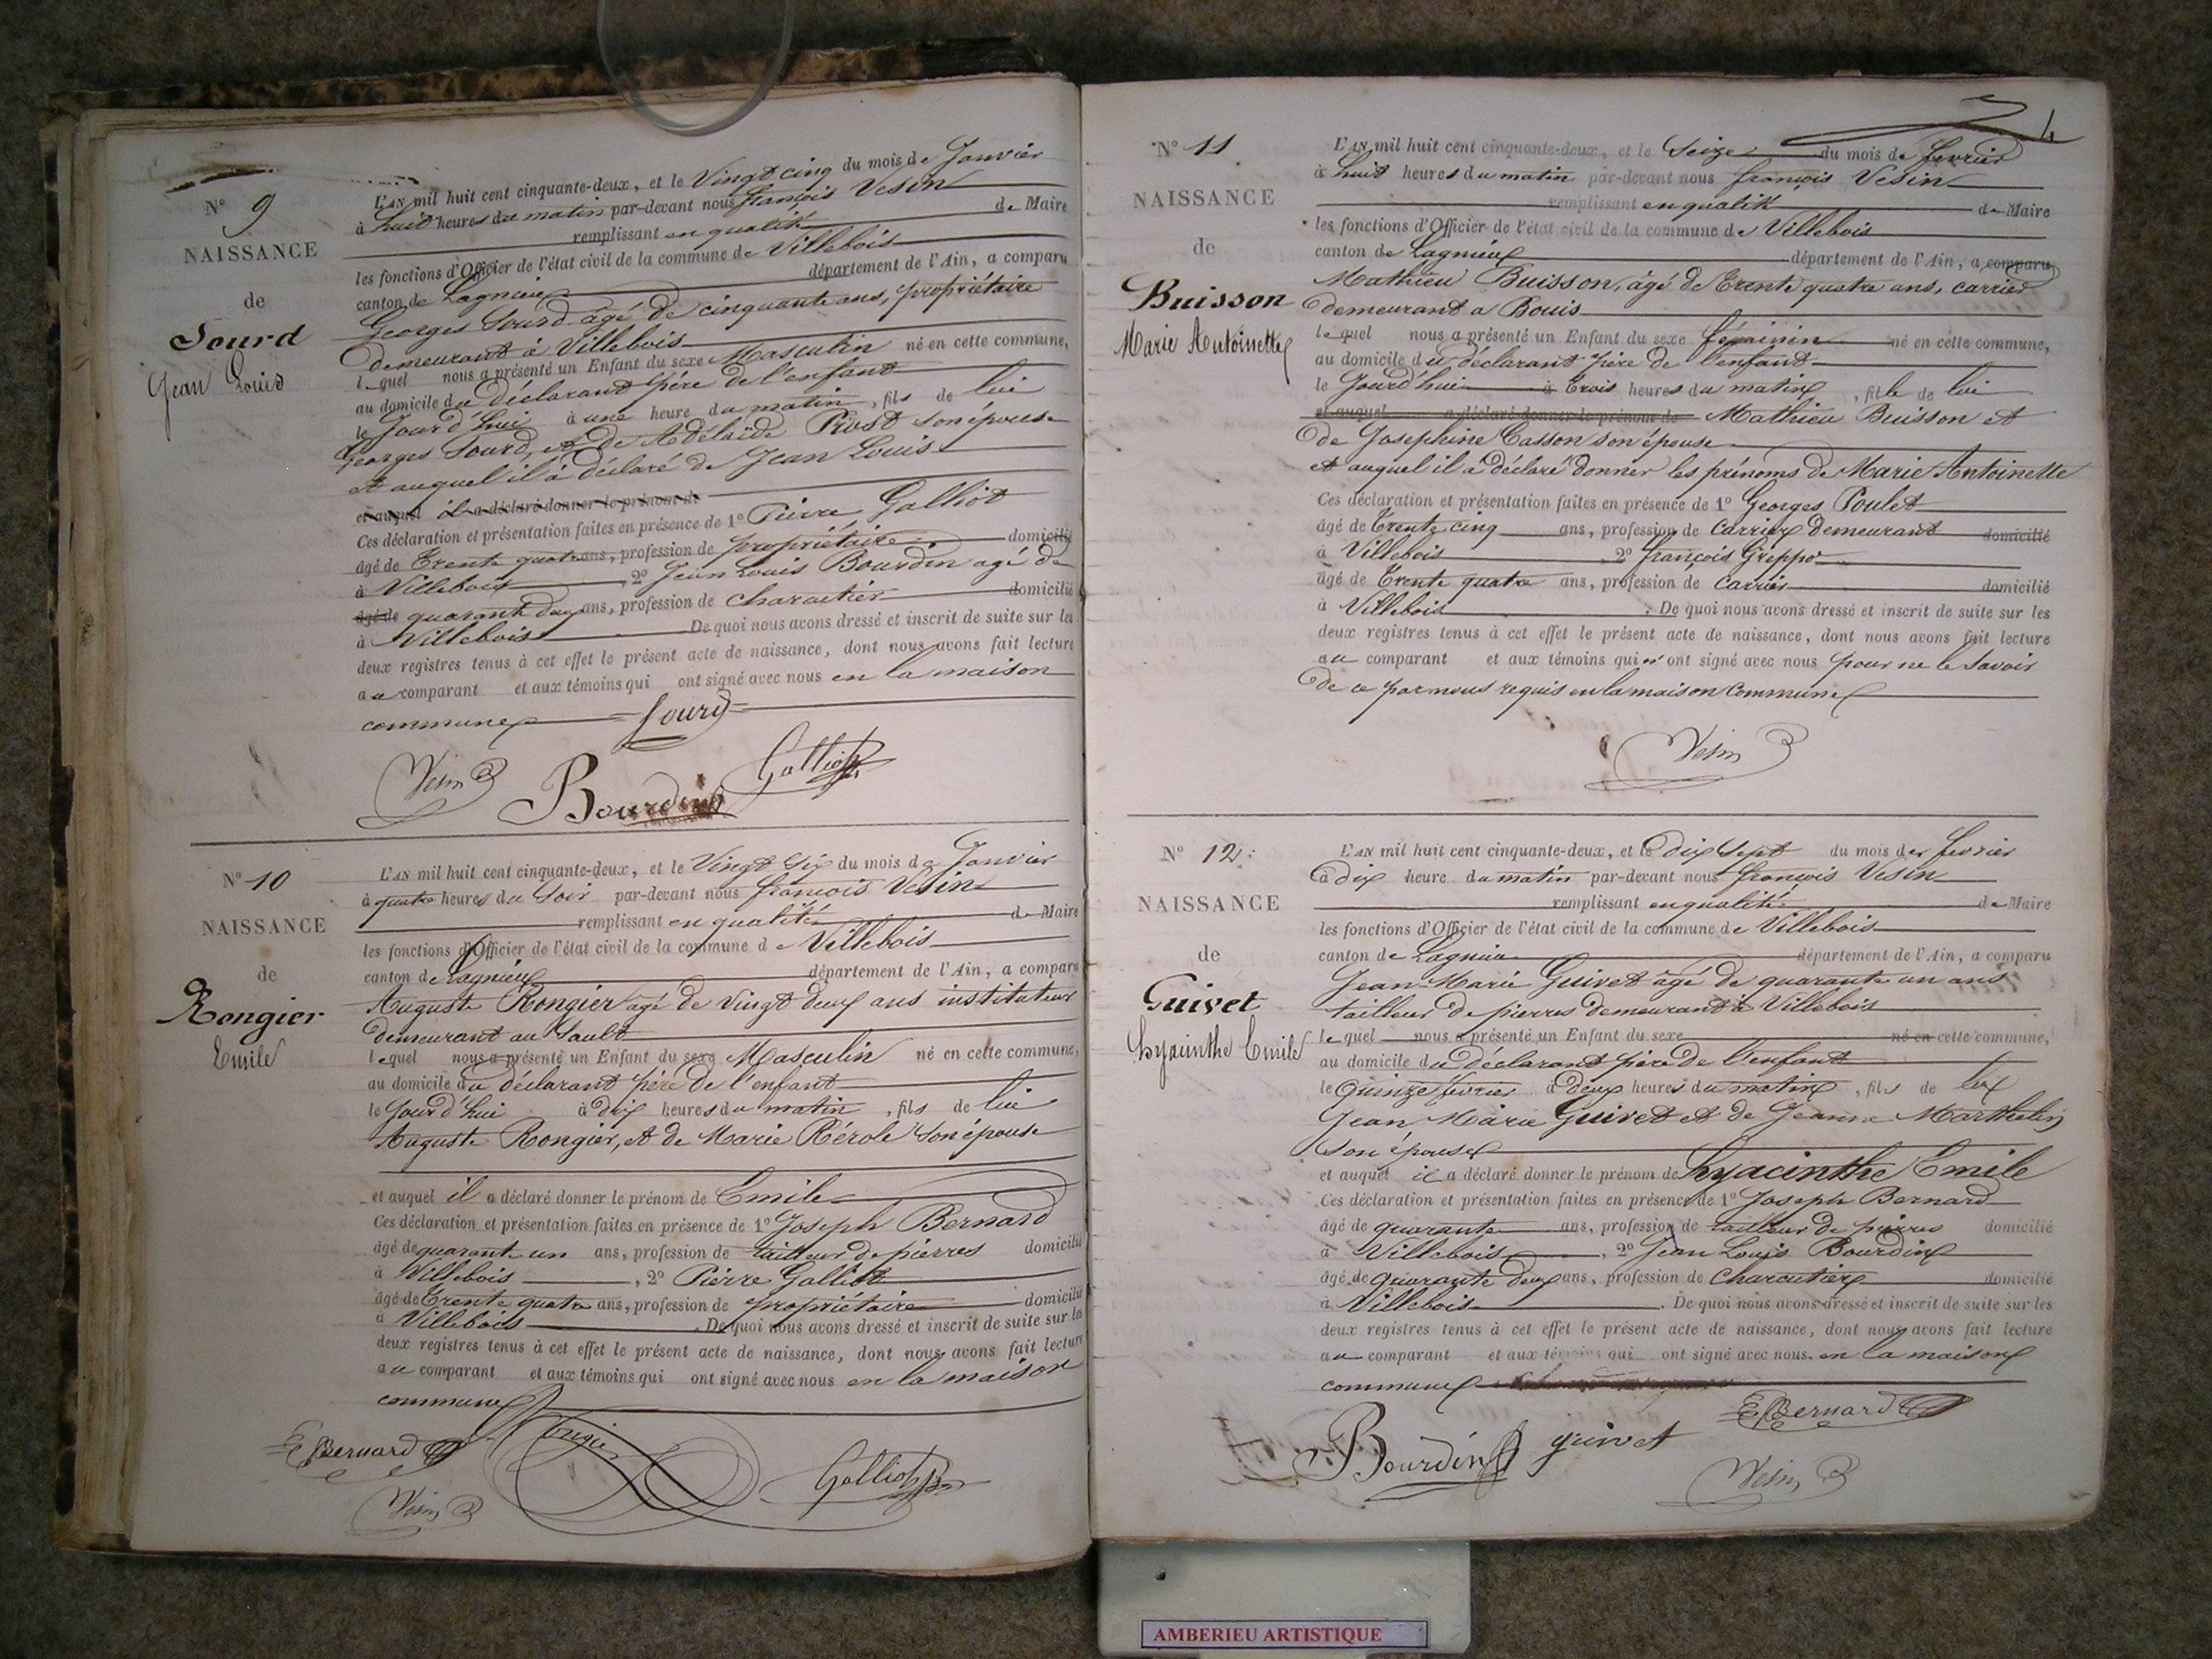 N° 9
NAISSANCE
de
Sourd
Jean Louis
L'AN mil huit cent cinquante-deux, et le Vingt cinq du mois de Janvier
à huit heures du matin par-devant nous françois Vesin
remplissant en qualité de Maire
les fonctions d'Officier de l'état civil de la commune de Villebois
canton de Lagnieu département de l'Ain, a comparu
Georges Sourd âgé de cinquante ans, propriétaire
demeurant à Villebois
lequel nous a présenté un Enfant du sexe Masculin né en cette commune,
au domicile du déclarant père de l'enfant
le Jourd'hui à une heure du matin, fils de lui
Georges Sourd, et de Adélaïde Prost son épouse
et auquel il a déclaré de Jean Louis
et auquel il a déclaré donner le prénom de
Ces déclaration et présentation faites en présence de 1° Pierre Galliot
âgé de Trente quatre ans, profession de propriétaire domicilié
à Villebois, 2° Jean Louis Bourdin agé de
âgé de quarante deux ans, profession de charcutier domicilié
à Villebois De quoi nous avons dressé et inscrit de suite sur les
deux registres tenus à cet effet le présent acte de naissance, dont nous avons fait lecture
au comparant et aux témoins qui ont signé avec nous en la maison
commune Sourd
Vesin Bourdin Galliot
N° 10
NAISSANCE
de
Rongier
Emile
L'AN mil huit cent cinquante-deux, et le Vingt Six du mois de Janvier
à quatre heures du Soir par-devant nous françois Vesin
remplissant en qualité de Maire
les fonctions d'Officier de l'état civil de la commune de Villebois
canton de Lagnieu département de l'Ain, a comparu
Auguste Rongier agé de vingt deux ans instituteur
demeurant au Sault
lequel nous a présenté un Enfant du sexe Masculin né en cette commune,
au domicile du déclarant père de l'enfant
le Jourd'hui à dix heures du matin, fils de lui
Auguste Rongier, et de Marie Rérole son épouse
et auquel il a déclaré donner le prénom de Emile
Ces déclaration et présentation faites en présence de 1° Joseph Bernard
âgé de quarante un ans, profession de tailleur de pierres domicilié
à Villebois, 2° Pierre Galliot
âgé de Trente quatre ans, profession de propriétaire domicilié
à Villebois. De quoi nous avons dressé et inscrit de suite sur les
deux registres tenus à cet effet le présent acte de naissance, dont nous avons fait lecture
au comparant et aux témoins qui ont signé avec nous en la maison
commune
Bernard Rongier Galliot
Vesin
4
N° 11
NAISSANCE
de
Buisson
Marie Antoinette
L'AN mil huit cent cinquante-deux, et le Seize du mois de fevrier
à huit heures du matin par-devant nous françois Vesin
remplissant en qualité de Maire
les fonctions d'Officier de l'état civil de la commune de Villebois
canton de Lagnieu département de l'Ain, a comparu
Mathieu Buisson, âgé de Trente quatre ans, carrier
demeurant a Bouis
lequel nous a présenté un Enfant du sexe féminin né en cette commune,
au domicile du déclarant père de l'enfant
le Jourd'hui à Trois heures du matin, fille de lui
et auquel a déclaré donner le prénom de Mathieu Buisson et
de Josephine Casson son épouse
et auquel il a déclaré donner les prénoms de Marie Antoinette
Ces déclaration et présentation faites en présence de 1° Georges Poulet
âgé de Trente cinq ans, profession de Carrier demeurant domicilié
à Villebois 2° françois Greppo
âgé de Trente quatre ans, profession de Carrier domicilié
à Villebois. De quoi nous avons dressé et inscrit de suite sur les
deux registres tenus à cet effet le présent acte de naissance, dont nous avons fait lecture
au comparant et aux témoins qui n'ont signé avec nous pour ne le Savoir
de ce par nous requis en la maison Commune
Vesin
N° 12
NAISSANCE
de
Guivet
hyacinthe Emile
L'AN mil huit cent cinquante-deux, et le dix Sept du mois de fevrier
à dix heure du matin par-devant nous françois Vesin
remplissant en qualité de Maire
les fonctions d'Officier de l'état civil de la commune de Villebois
canton de Lagnieu département de l'Ain, a comparu
Jean-Marie Guivet âgé de quarante un ans
tailleur de pierres demeurant à Villebois
lequel nous a présenté un Enfant du sexe né en cette commune,
au domicile du déclarant père de l'enfant
le Quinze fevrier à deux heures du matin, fils de lui
Jean Marie Guivet et de Jeanne Marthelin
Son épouse
et auquel il a déclaré donner le prénom de hyacinthe Emile
Ces déclaration et présentation faites en présence de 1° Joseph Bernard
âgé de quarante ans, profession de tailleur de pierres domicilié
à Villebois, 2° Jean Louis Bourdin
âgé de quarante deux ans, profession de Charcutier domicilié
à Villebois. De quoi nous avons dressé et inscrit de suite sur les
deux registres tenus à cet effet le présent acte de naissance, dont nous avons fait lecture
au comparant et aux témoins qui ont signé avec nous. en la maison
commune
Bourdin guivet Bernard
Vesin
AMBERIEU ARTISTIQUE